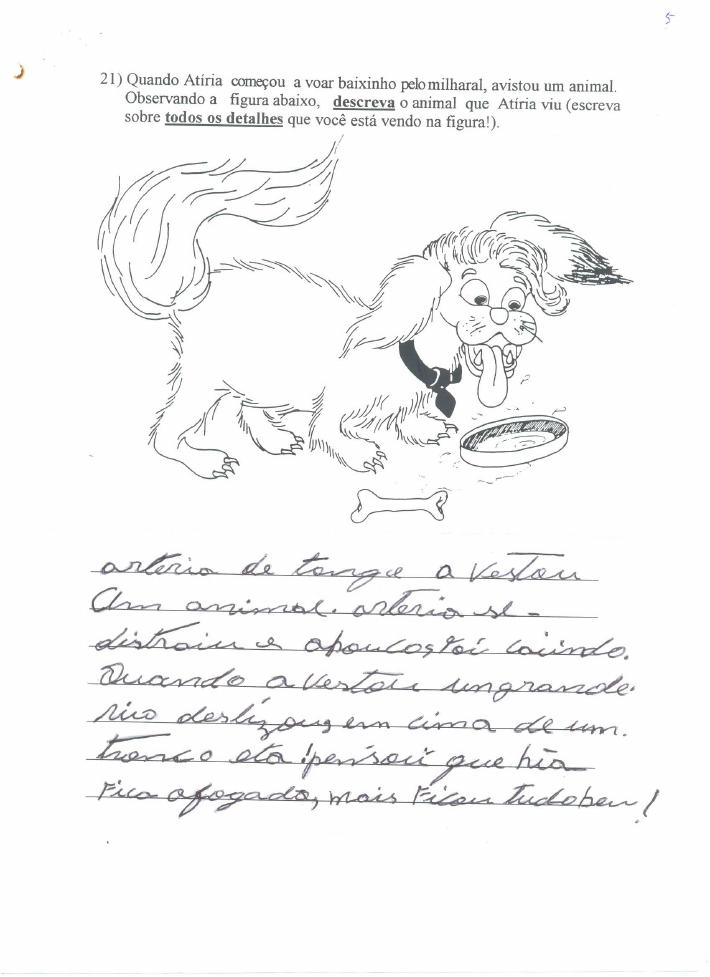 5
21) Quando Atíria começou a voar baixinho pelo milharal, avistou um animal.
Observando a figura abaixo, descreva o animal que Atíria viu (escreva
sobre todos os detalhes que você está vendo na figura!).
arteria de longe a vestou
Um animal. arteria se-
distraiu e apoucos foi caindo.
Quando a vestou un grande.
rio deslizou em cima de um.
tronco eta! pensou que hia
Fica afogada, mais Ficou tudo ben!